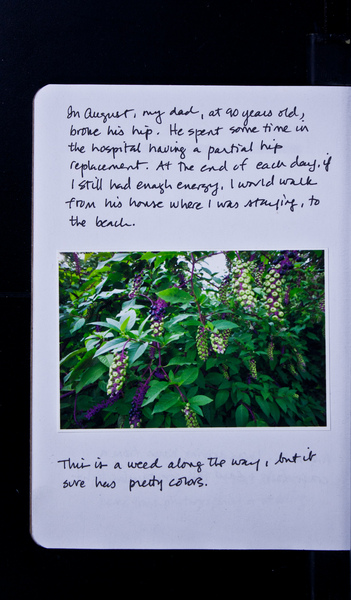 In August, my dad, at 90 years old,
broke his hip. He spent some time in
the hospital having a partial hip
replacement. At the end of each day, if
I still had enough energy, I would walk
from his house where I was staying, to
the beach.
This is a weed along the way, but it
sure has pretty colors.